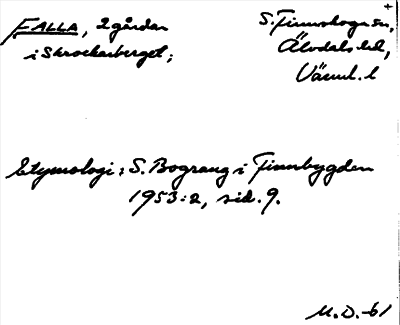 FALLA, 2 gårdar
i Skrockarberget;
S. Finnskoga sn,
Älvdals hd,
Värml. l
Etymologi: S. Bograng i Finnbygden
1953:2, sid. 9.
M.O.-61